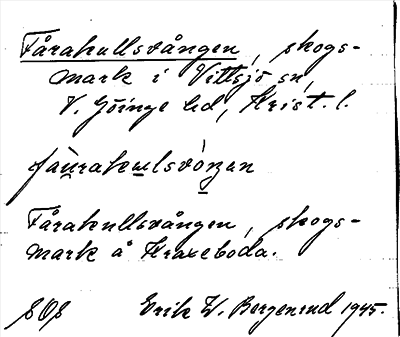 Fårakullsvången, skogs-
mark i Vittsjö sn,
V. Göinge hd, Krist. l.
Fårakullsvången, skogs-
mark å Kraxeboda.
Erik W. Bergenrud 1945.